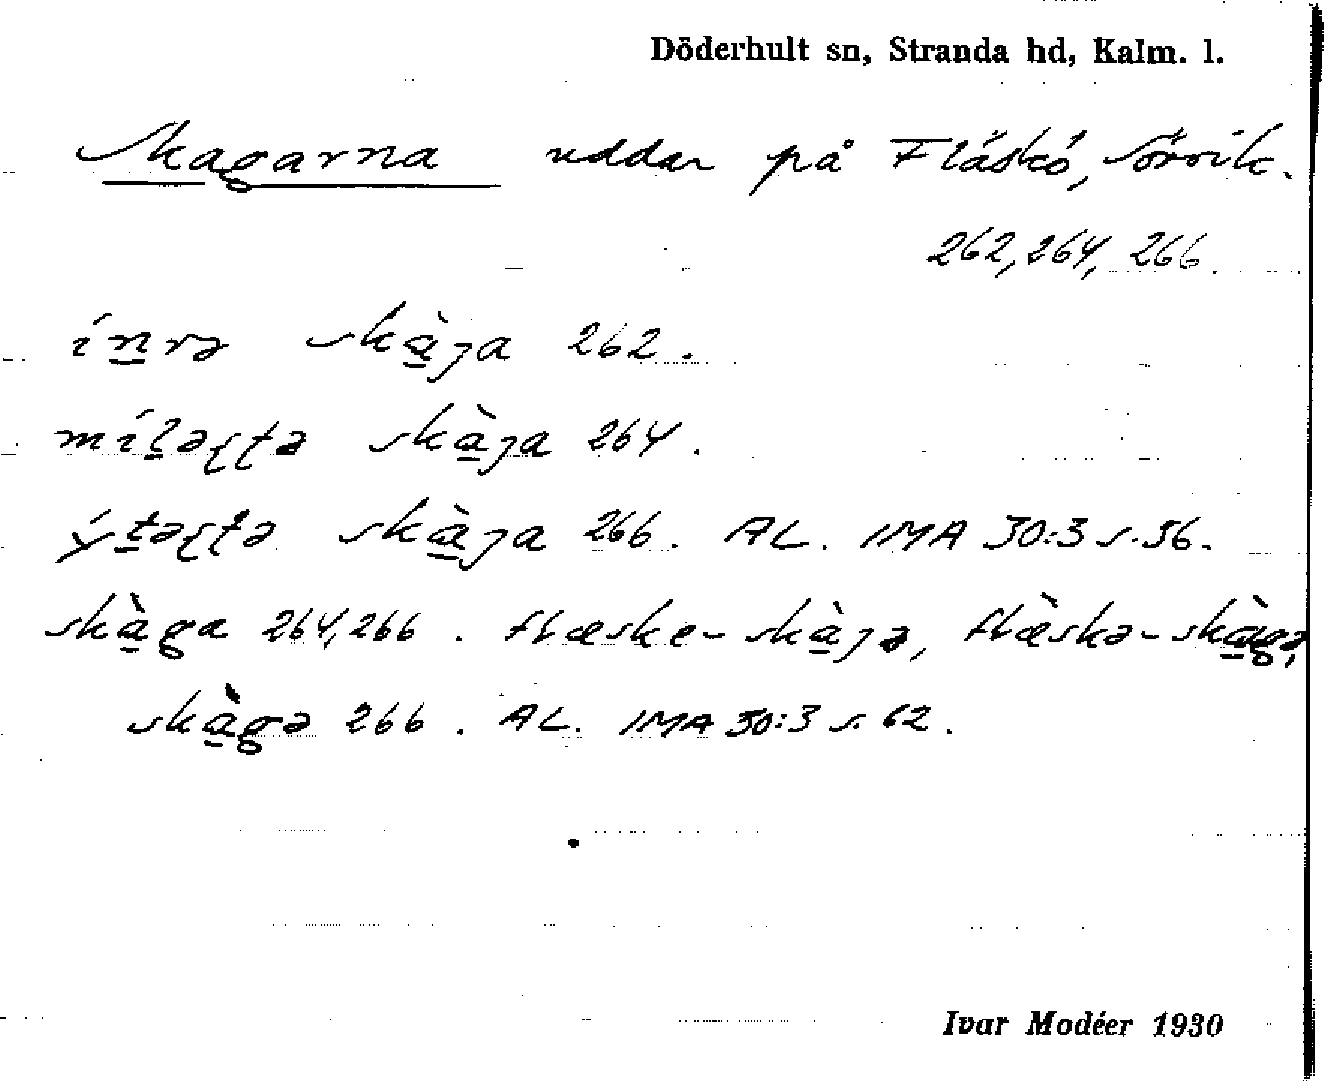 Döderhult sn, Stranda hd, Kalm. l.
Skagarna uddar på Fläskö, Sörvik.
262, 264, 266.
ínrə skàɡ̣a 262.
skàja 264.
skàja 266. AL. IMA 30:3 s. 56.
skàga 264, 266. flæske-skàjə, flæ̀skə-skàgə,
skàgə 266. AL. IMA 30:3 s. 62.
Ivar Modéer 1930